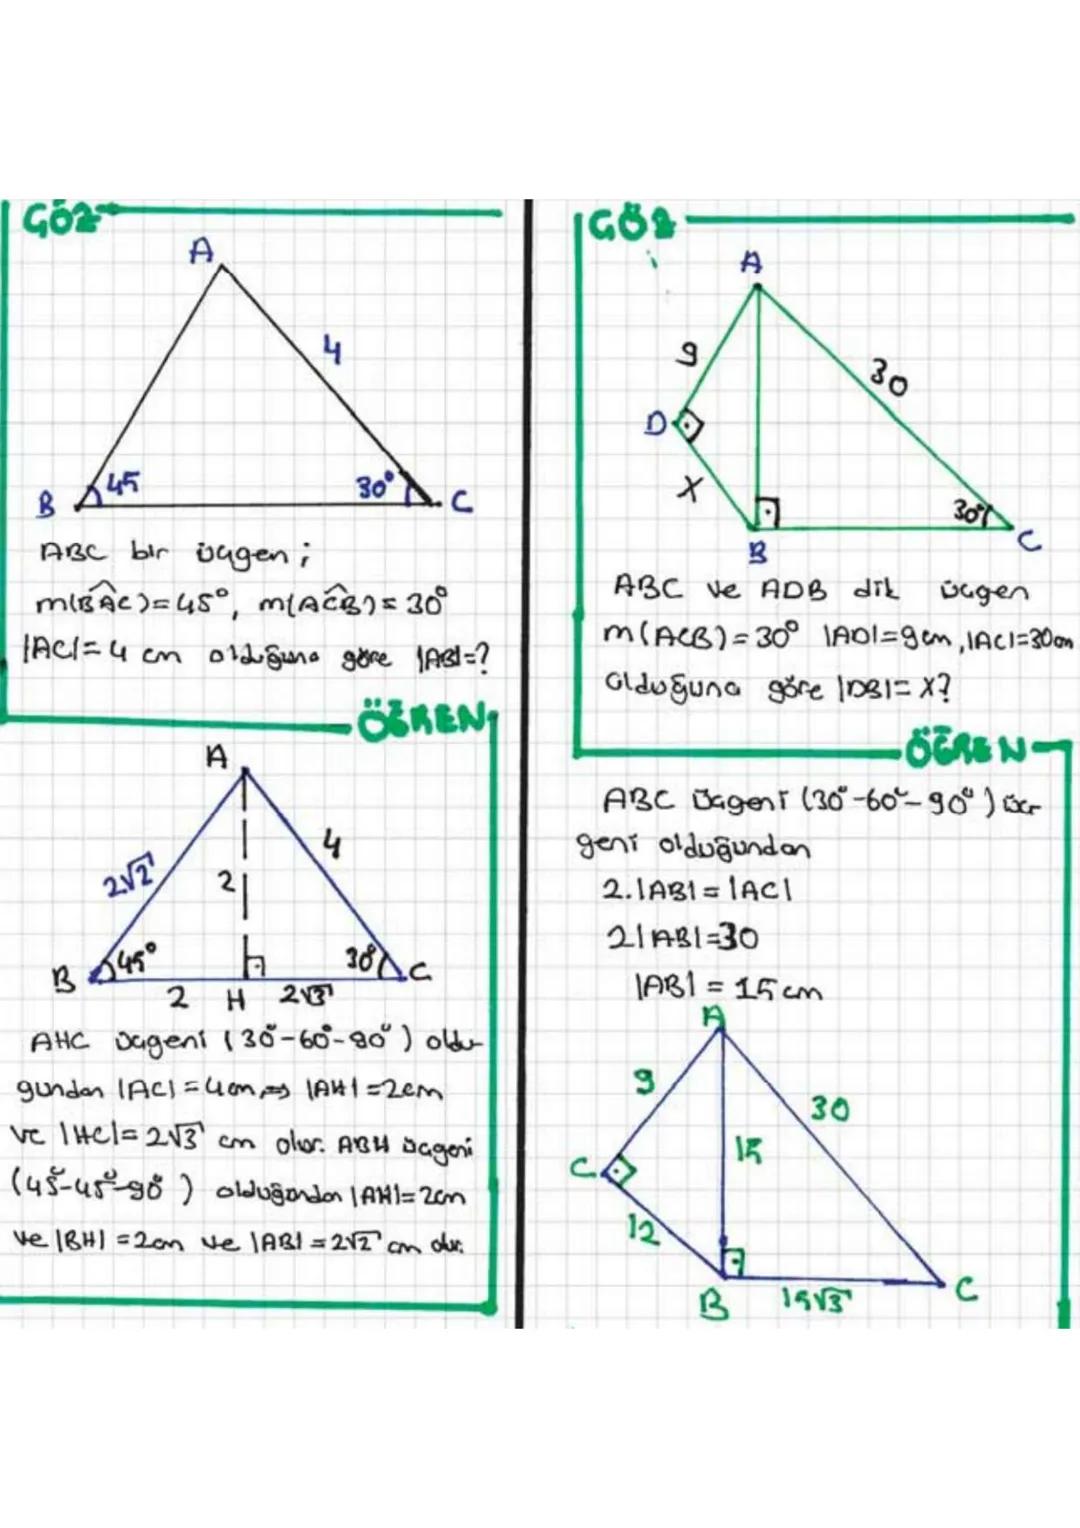 GÖZ
A
4
45
30°
B
C
ABC bir üçgen;
m(BÂC)=45°, m(AĈB)=30°
|AC|=4 cm olduğuna göre |AB|=?
ÖĞREN
A
2√2
4
2
45°
30°
B
C
2 H 2√3
AHC üçgeni (30°-60°-90°) oldu-
gundan |AC|=4cm ⇒ |AH|=2cm
ve |HC|=2√3 cm olur. ABH üçgeni
(45°-45°-90°) olduğundan |AH|=2cm
ve |BH|=2cm ve |AB|=2√2 cm olur.
GÖZ
A
9
30
D
x
30°
B
C
ABC ve ADB dik üçgen
m(ACB)=30° |AD|=9cm, |AC|=30cm
olduğuna göre |DB|=x?
ÖĞREN
ABC üçgeni (30°-60°-90°) üç-
geni olduğundan
2.|AB|=|AC|
2|AB|=30
|AB|=15cm
A
9
30
15
C
12
B
15√3
C